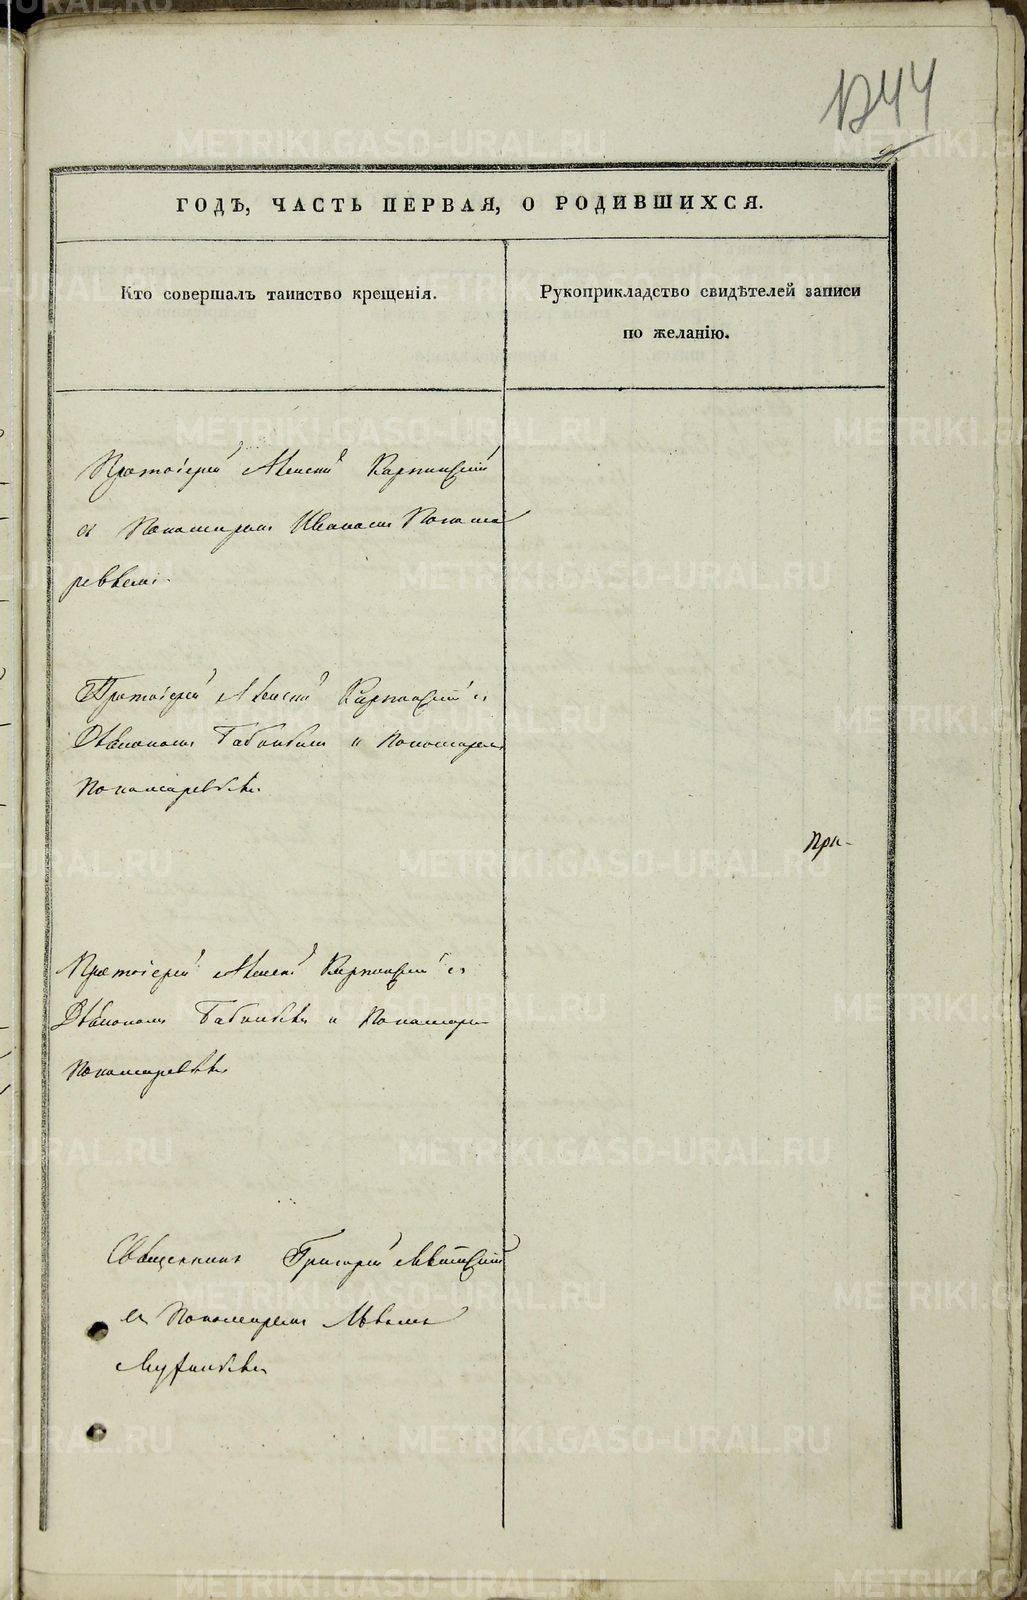 1244
ГОДЪ, ЧАСТЬ ПЕРВАЯ, О РОДИВШИХСЯ.
Кто совершалъ таинство крещенія.
Рукоприкладство свидѣтелей записи
по желанію.
Протоіерей Алексій Карпинскій
съ Пономаремъ Иваномъ Понома
ревымъ
Протоіерей Алексій Карпинскій съ
Діакономъ Бабиновымъ и Пономаремъ
Пономаревымъ
При-
Протоіерей Алексій Карпинскій съ
Діакономъ Бабиновымъ и Пономаремъ
Пономаревымъ
Священникъ Григорій
съ Пономаремъ
METRIKI.GASO-URAL.RU